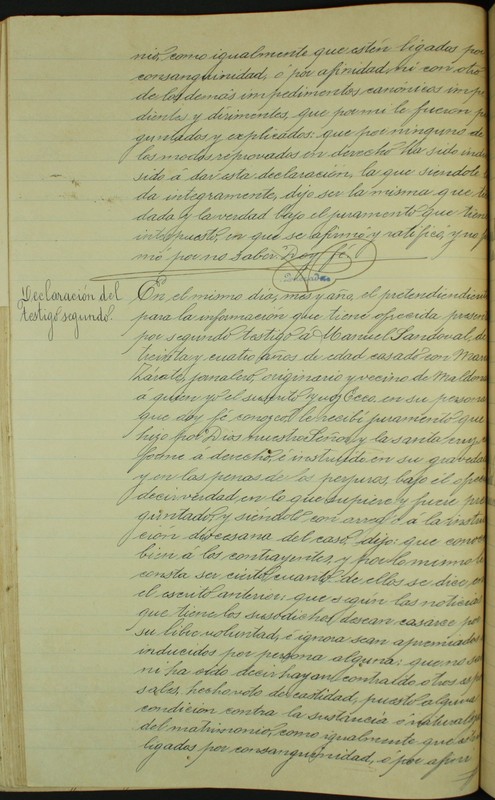 nio, como igualmente que estén ligados por
consanguinidad, ó por afinidad, ni con otro
de los demás impedimentos canónicos impe
dientes y dirimentes, que por mi le fueron pre
guntados y explicados: que por ninguno de
los modos reprovados en derecho ha sido indu
sido á dar esta declaración, la que siendole
da integramente, dijo ser la misma que
dada y la verdad bajo el juramento que tiene
interpuesto, en que se afirmó y ratificó, y no
mó por no saber. Doy fé.
Declaración del
testigo segundo.
En el mismo dia, mes y año, el pretendiendien
para la información que tiene ofrecida presen
por segundo testigo á Manuel Sandoval, de
treinta y cuatro años de edad casado con Maria
Zárate, jornalero, originario y vecino de Maldona
á quien yó el suscrito Juez Ecco. en su persona
que doy fé conozco le recibí juramento que
hizo por Dios nuestro Señor y la santa cruz
forme á derecho, é instruido en su gravedad
y en las penas de los perjuros, bajo él ofrec
decir verdad en lo que supiere y fuere pre
guntado, y siéndolo con arreglo á la instruc
ción diocesana del caso, dijo: que conoce
bien á los contrayentes, y por lo mismo le
consta ser cierto cuanto de ellos se dice, en
el escrito anterior: que según las noticias
que tiene los susodichos desean casarse por
su libre voluntad, é ignora sean apremiados
inducidos por persona alguna: que no sabe
ni ha oido decir hayan contraído otros espon
sales, hecho voto de castidad, puesto alguna
condición contra la sustancia ó naturaleza
del matrimonio, como igualmente que estén
ligados por consanguinidad, ó por afini